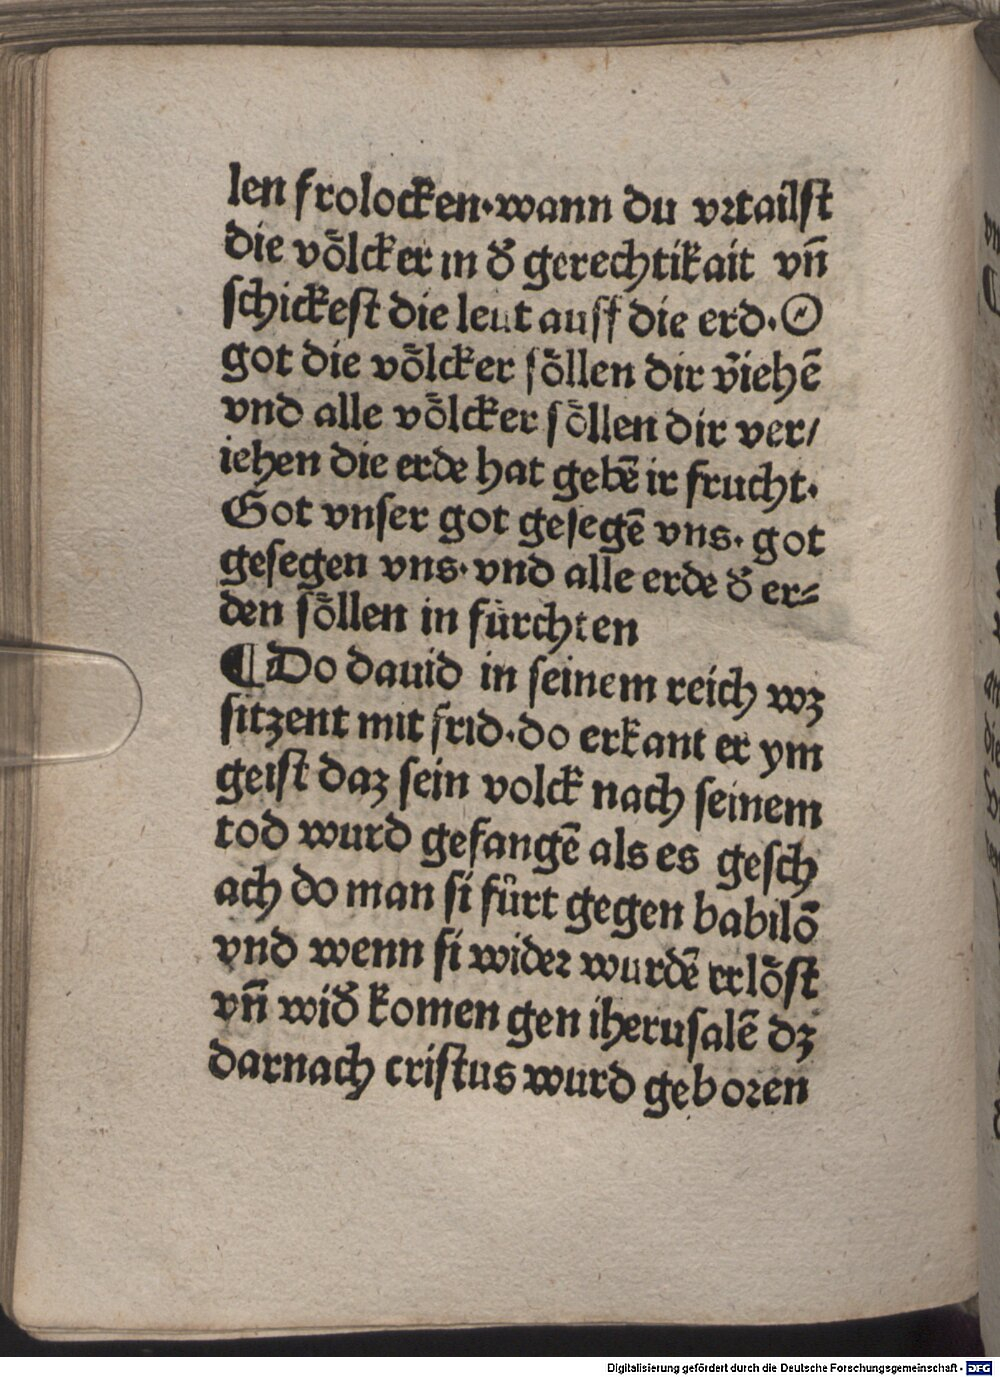 len frolocken·wann du vrtailst
die võlcker in đ gerechtikait vñ
schickest die leut auff die erd·O
got die võlcker sõllen dir v̄iehē
vnd alle võlcker sõllen dir ver/
iehen die erde hat gebē ir frucht·
Got vnser got gesegē vns· got
gesegen vns·vnd alle erde đ er⸗
den sõllen in fürchten
¶Do dauid in seinem reich wz
sitzent mit frid·do erkant er ym
geist daz sein volck nach seinem
tod wurd gefangē als es gesch
ach do man si fůrt gegen babilō
vnd wenn si wider wurdē erlõst
vñ wiđ komen gen iherusalē dz
darnach cristus wurd geboren
Digitalisierung gefördert durch die Deutsche Forschungsgemeinschaft - DFG